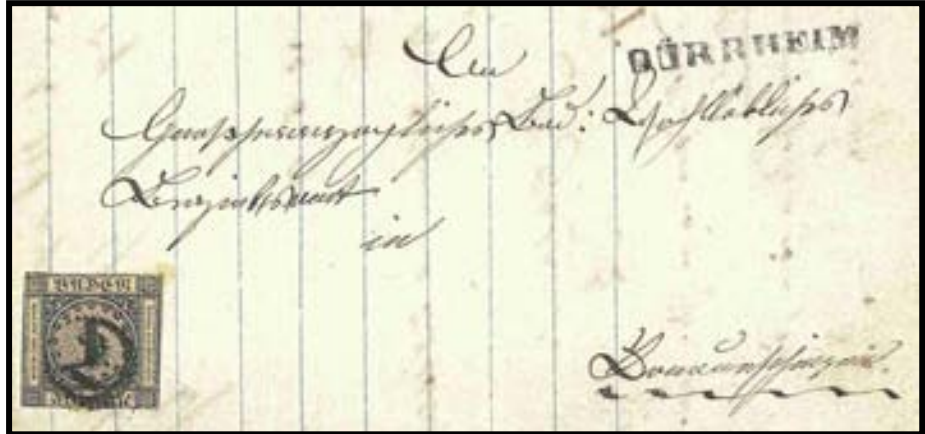 DÜRRHEIM
An
Großherzogliches Bad: Hochlöbliches
Bezirksamt
in
Donaueschingen.
BADEN